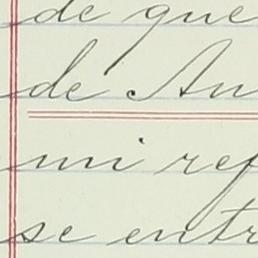 de que
de An
mi ref
se entr